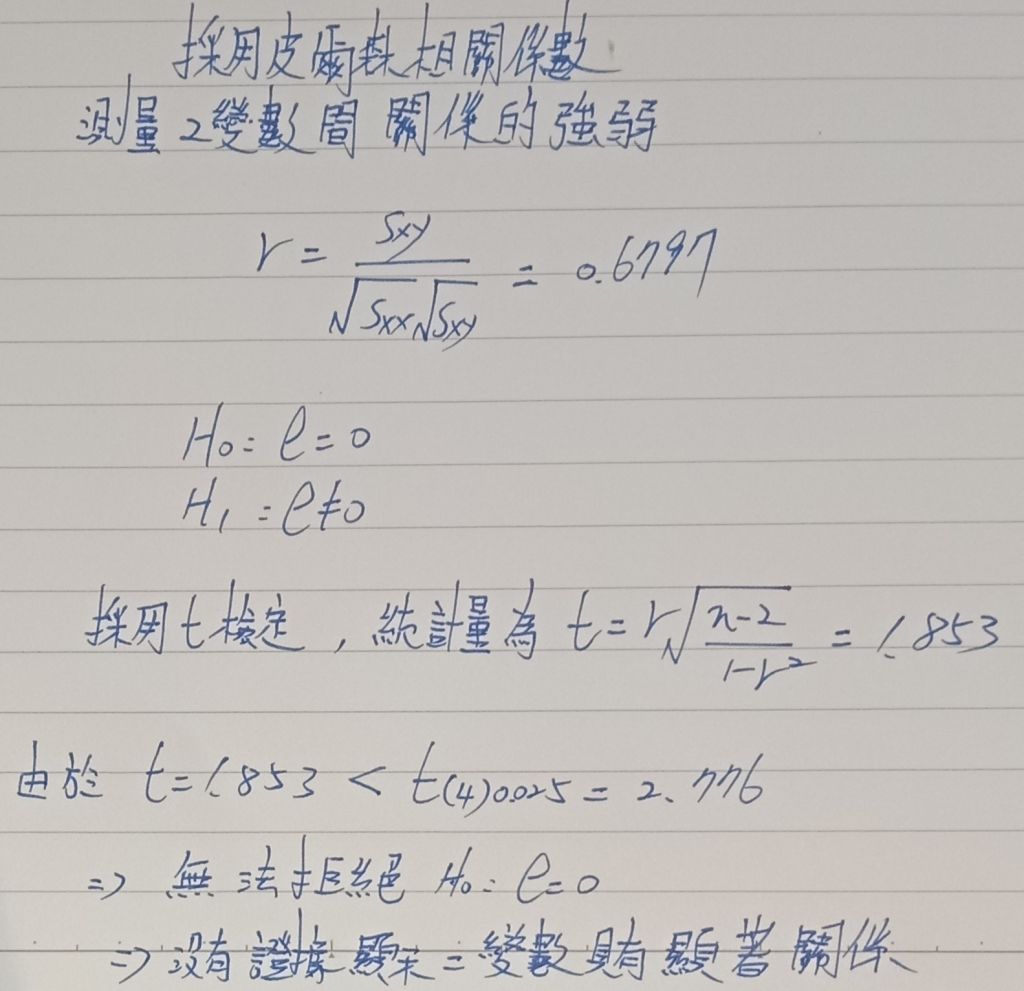 採用皮爾森相關係數
測量2變數間關係的強弱
r = Sxy / √Sxx √Sxy = 0.6797
H0: ρ = 0
H1: ρ ≠ 0
採用t檢定,統計量為 t = r√((n-2)/(1-r²)) = 1.853
由於 t = 1.853 < t(4)0.025 = 2.776
⇒ 無法拒絕 H0: ρ = 0
⇒ 沒有證據顯示二變數具有顯著關係